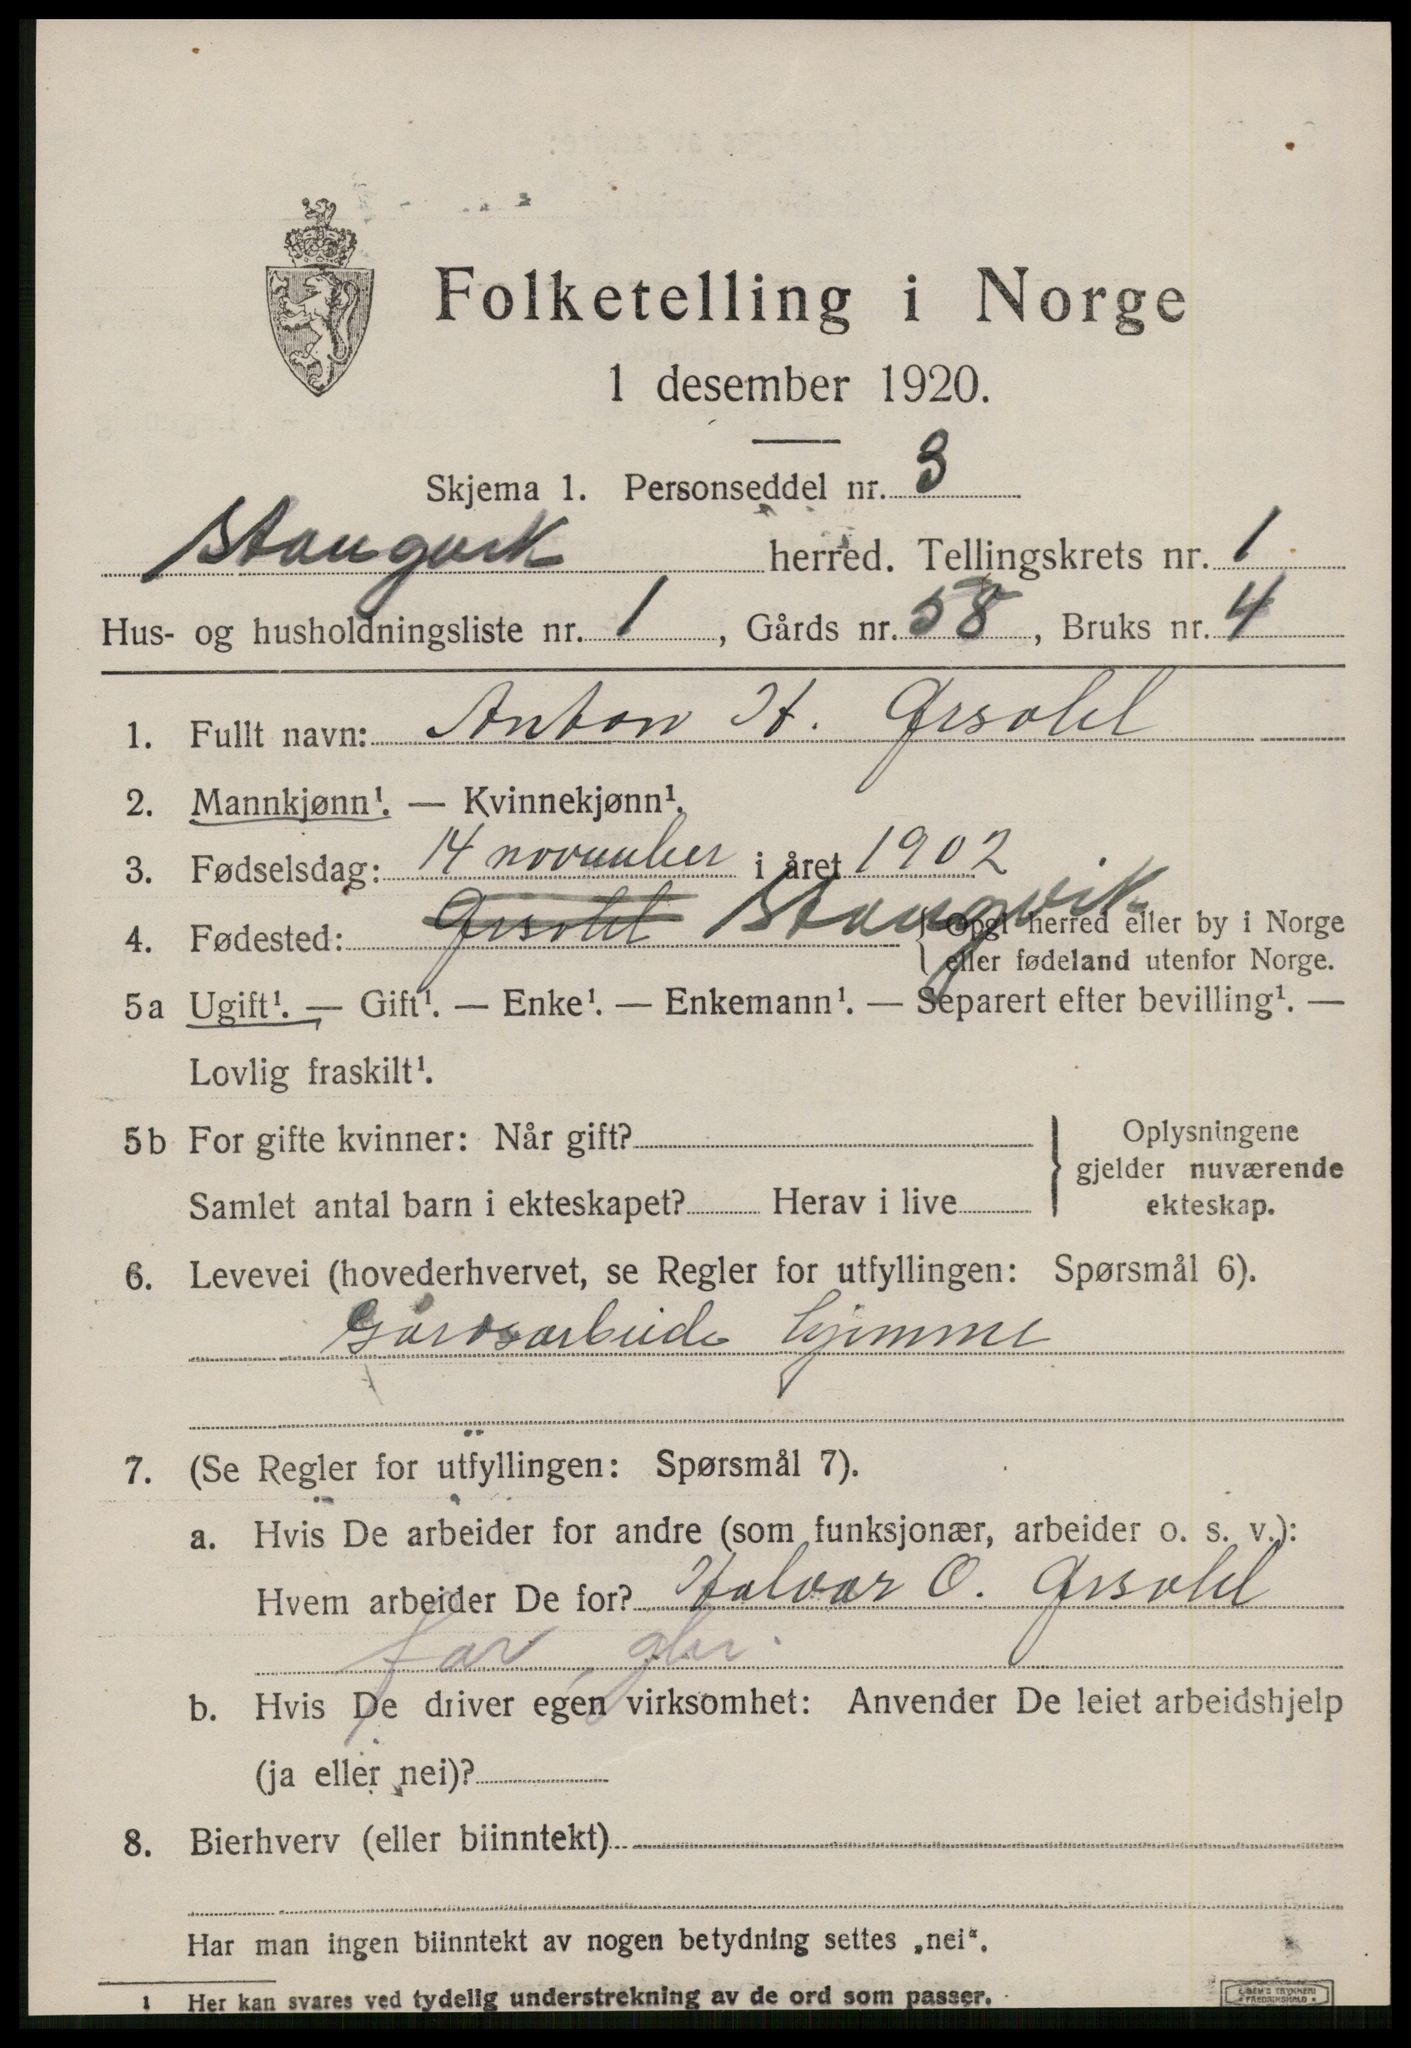 Folketelling i Norge
1 desember 1920.
Skjema 1. Personseddel nr. 3
Stangvik herred. Tellingskrets nr. 1
Hus- og husholdningsliste nr. 1, Gårds nr. 58, Bruks nr. 4
1. Fullt navn: Anton H. Grsolel
2. Mannkjønn¹. — Kvinnekjønn¹.
3. Fødselsdag: 14 november i året 1902
4. Fødested: Stangvik { Opgi herred eller by i Norge
eller fødeland utenfor Norge.
5a Ugift¹. — Gift¹. — Enke¹. — Enkemann¹. — Separert efter bevilling¹. —
Lovlig fraskilt¹.
5b For gifte kvinner: Når gift? } Oplysningene
gjelder nuværende
Samlet antal barn i ekteskapet? Herav i live ekteskap.
6. Levevei (hovederhvervet, se Regler for utfyllingen: Spørsmål 6).
Gårdsarbeide hjemme
7. (Se Regler for utfyllingen: Spørsmål 7).
a. Hvis De arbeider for andre (som funksjonær, arbeider o. s. v.):
Hvem arbeider De for? Halvar O. Grsolel
far, gbr.
b. Hvis De driver egen virksomhet: Anvender De leiet arbeidshjelp
(ja eller nei)?
8. Bierhverv (eller biinntekt)
Har man ingen biinntekt av nogen betydning settes „nei“.
1 Her kan svares ved tydelig understrekning av de ord som passer.